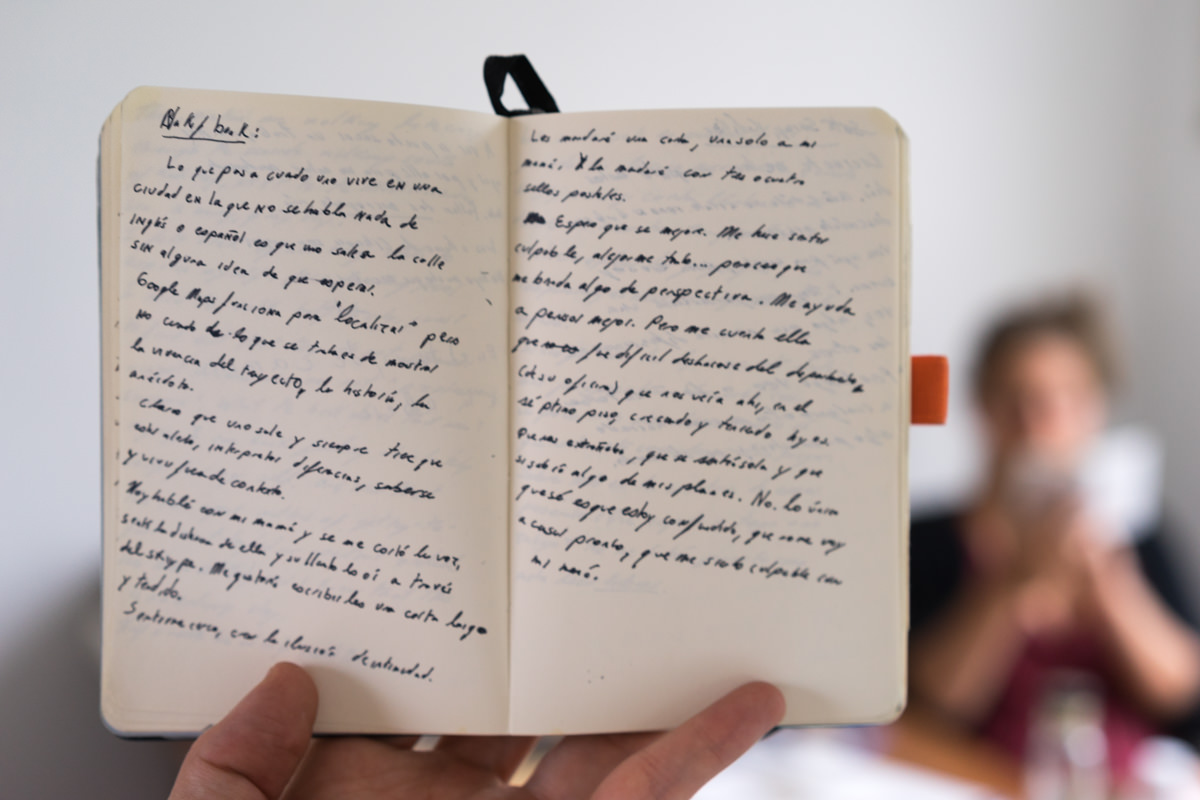 Lo que pasa cuando uno vive en una
ciudad en la que no se habla nada de
inglés o español es que uno sale a la calle
sin alguna idea de que esperar.
Google Maps funciona para "localizar" pero
no cuando de lo que se trata es de mostrar
la vivencia del trayecto, la historia, la
anécdota.
Claro que uno sale y siempre tiene que
estar alerta, interpretar diferencias, saberse
y vivir fuera de contexto.
Hoy hablé con mi mamá y se me cortó la voz,
sentí la distancia de ella y su llanto lo oí a través
del skype. Me gustaría escribirles una carta larga
y tendida.
Sentirme cerca, con la ilusión de intimidad.
Les mandaré una carta, una solo a mi
mamá. Y la mandaré con tres o cuatro
sellos postales.
Espero que se mejore. Me hace sentir
culpable, alejarme tanto... pero creo que
me brinda algo de perspectiva. Me ayuda
a pensar mejor. Pero me cuenta ella
que fue difícil deshacerse del departamento,
(de su oficina) que nos veía ahí, en el
séptimo piso, creciendo y teniendo hoy es.
que nos extrañaba, que se sentía sola y que
si sabía algo de mis planes. No. Lo único
que sé es que estoy confundido, que no me voy
a casar pronto, que me siento culpable con
mi mamá.